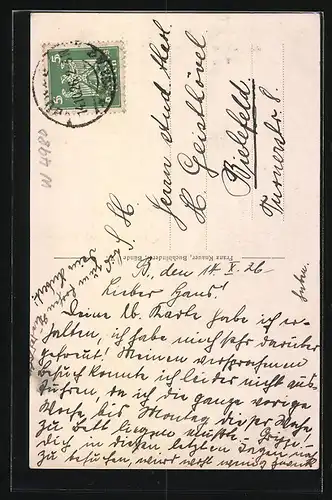 W 4980
5 5
S. H.
Herrn stud. theol.
H. Geisthövel
Bielefeld.
Turnerstr. 8.
Franz Knauer, Buchbinderei, Bünde
B., den 14. X. 26
Lieber Hans!
Deine lb. Karte habe ich er-
halten, ich habe mich sehr darüber
gefreut! Meinen versprochenen
Besuch konnte ich leider nicht aus-
führen, da ich die ganze vorige
Woche bis Montag dieser Woche
zu Bett liegen mußte.
Dich in diesen letzten Tagen noch
zu besuchen, wird wohl